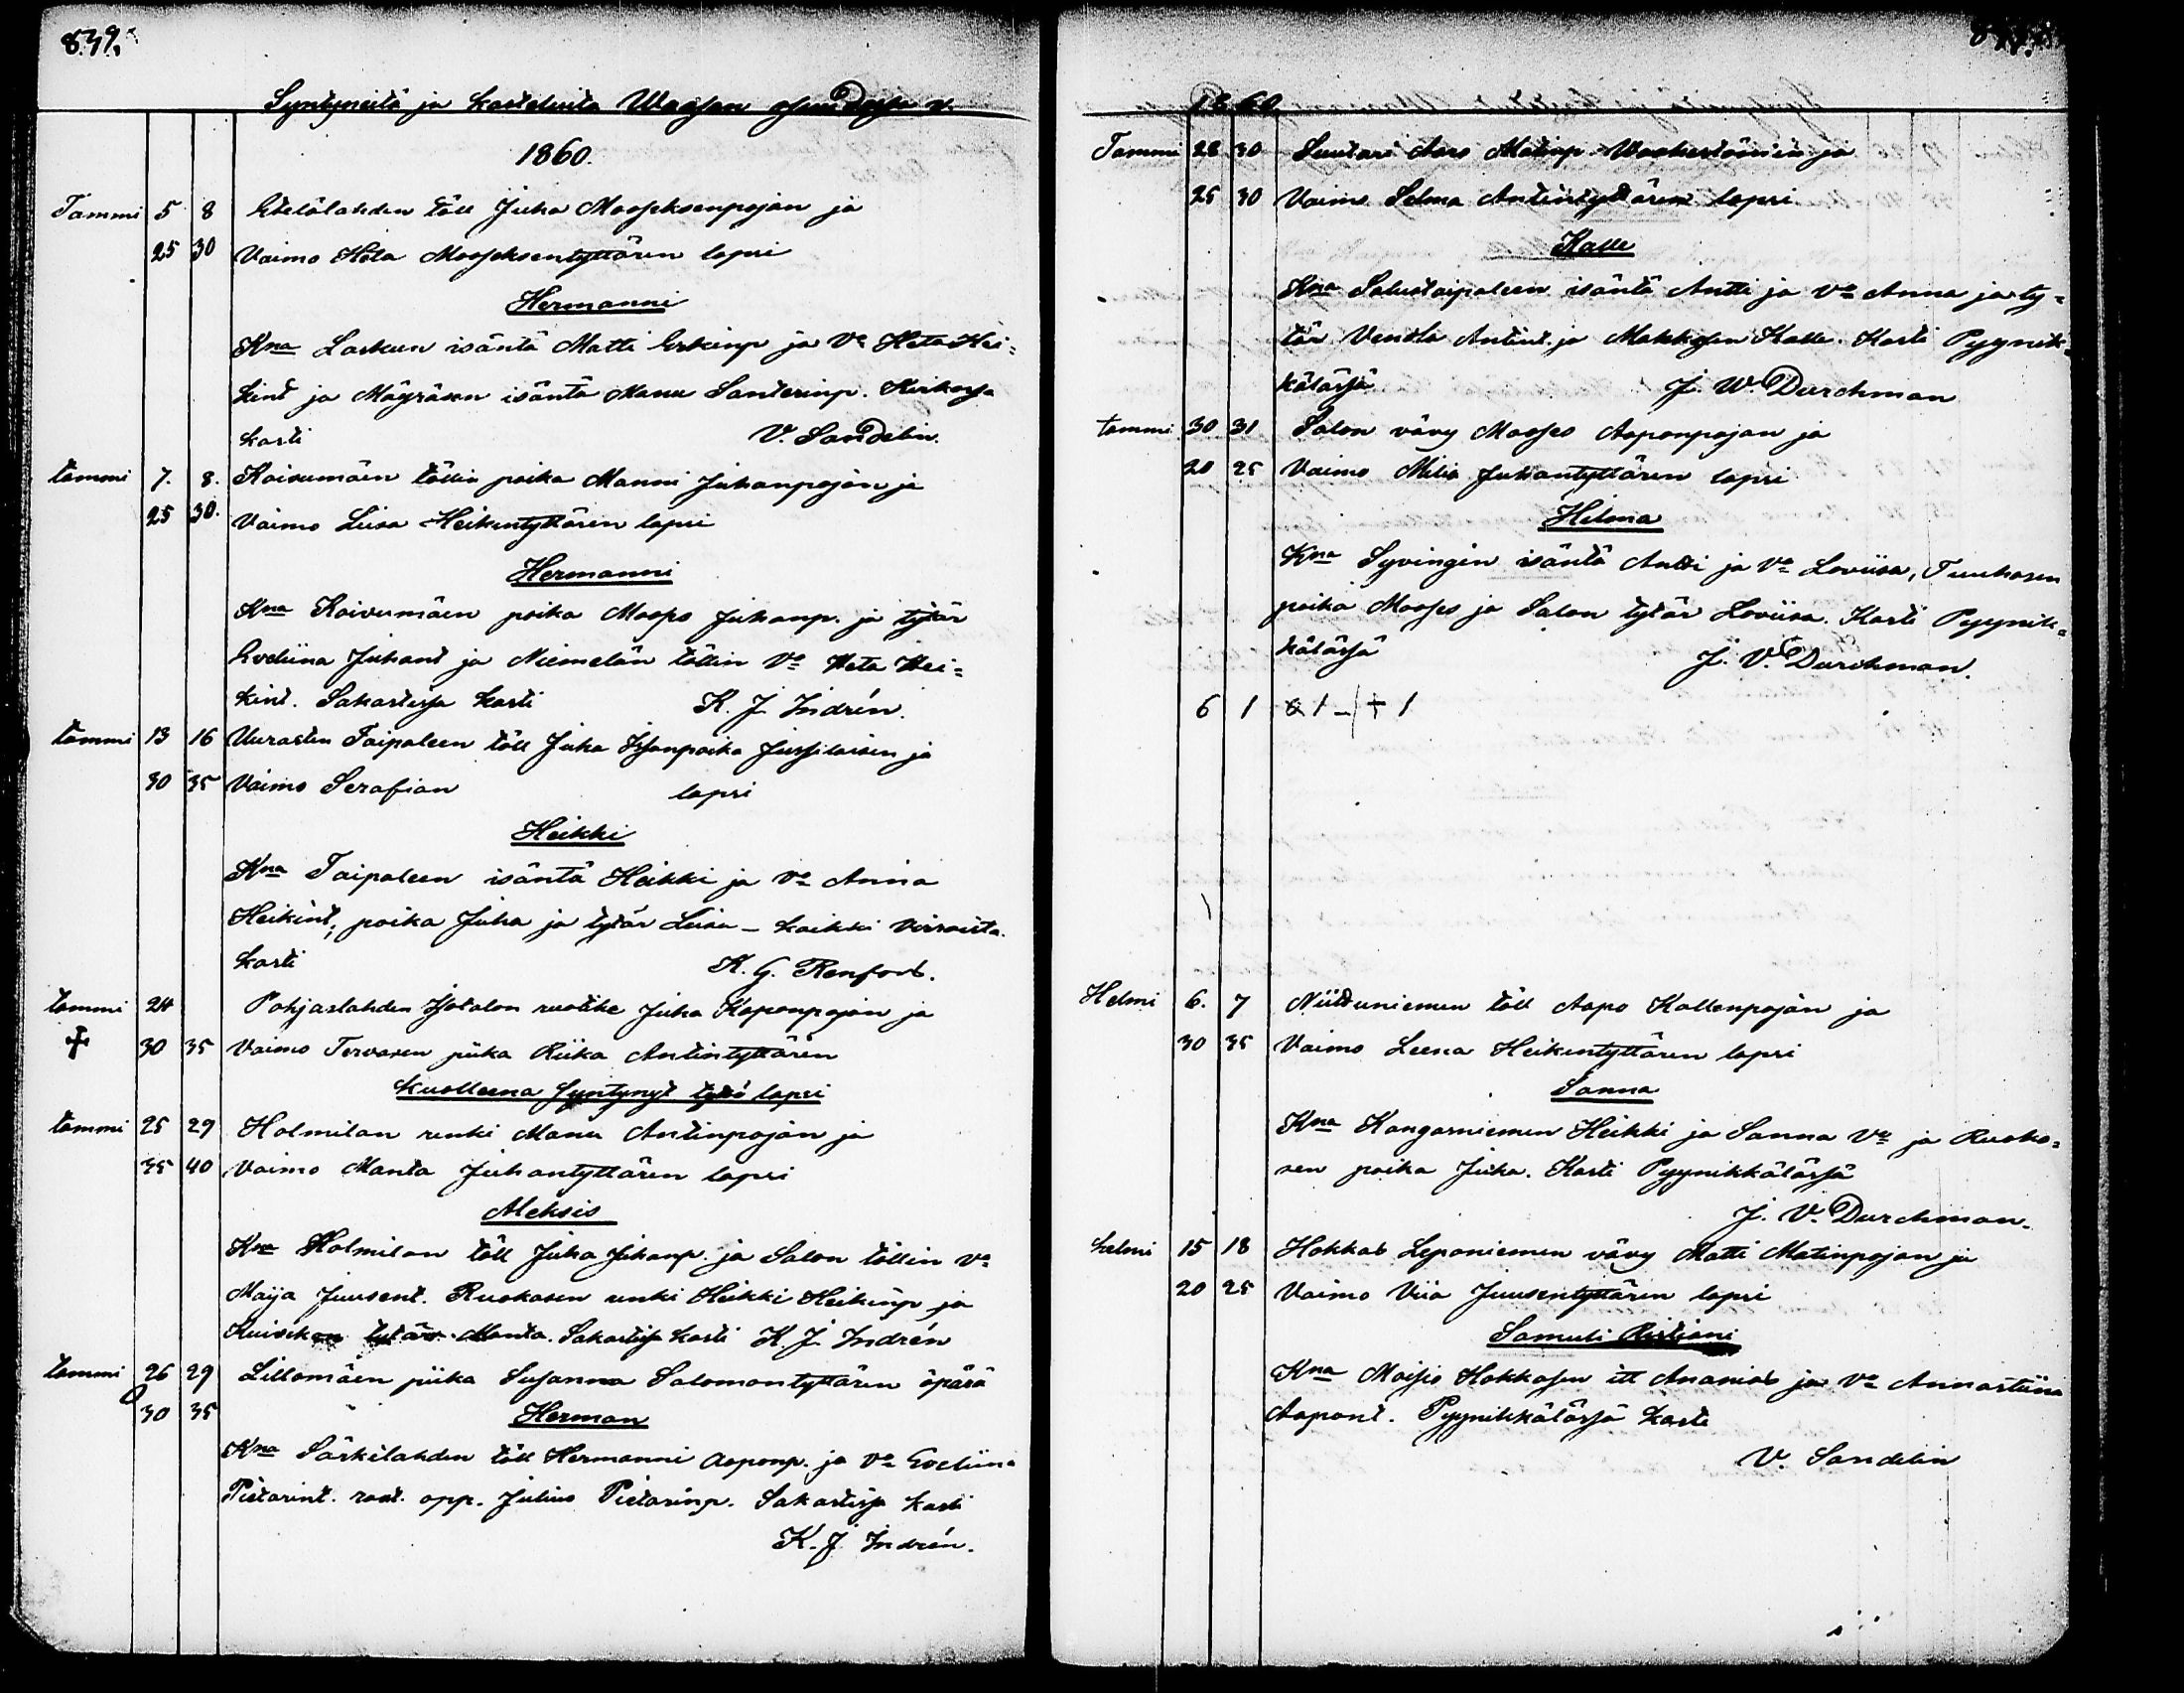 839.
Syntyneitä ja kasteluita v.
1860.
Tammi 5 8 Etelälahden töll Juha Mooseksenpojan ja
25 30 Vaimo Heta Mooseksentyttären lapsi
Hermanni
Kna Laskun isäntä Matti Erkinp ja Va Heta Hei=
kint ja Mäyräsen isäntä Manu Santerinp. Kirkossa
kasti V. Sandelin.
tammi 7. 8. Koivumäen töllin poika Manni Juhanpojan ja
25 30. Vaimo Liisa Heikintyttären lapsi
Hermanni
Kna Koivumäen poika Mooses Juhanp. ja tytär
Eveliina Juhant ja Niemelän töllin Va Heta Hei=
kint. Sakastissa kasti K. J. Indrén.
tammi 13 16 Taipaleen töll Juha ja
30 35 Vaimo Serafian lapsi
Heikki
Kna Taipaleen isäntä Heikki ja Va Anna
Heikint, poika Juha ja tytär Liisa – kaikki
kasti K. G. Renfors.
tammi 24 Pohjaslahden Isotalon ruotike Juha Kaponpojan ja
✝ 30 35 Vaimo Tervasen piika Riika Antintyttären
kuolleena Syntynyt tyttö lapsi
tammi 25 29 Holmilan renki Manu Antinpojan ja
35 40 Vaimo Manta Juhantyttären lapsi
Aleksis
Kna Holmilan töll Juha Juhanp. ja Salon töllin Va
Maija Juusent. Ruokosen renki Heikki Heikinp ja
tytär Manta. Sakastissa kasti K. J. Indrén
tammi 26 29 Lillomäen piika Susanna Salomontyttären äpärä
30 35 Herman
Kna Särkilahden töll Hermanni Aaponp. ja Va Eveliina
Pietarint. opp. Julius Pietarinp. Sakastissa kasti
K. J. Indrén.
1860
Tammi 28 30 Suutari Matinp. ja
25 30 Vaimo Selma Antintyttären lapsi
Kalle
Kna Salustaipaleen isäntä Antti ja Va Anna ja ty=
tär Vendla Antint. ja Makkosen Kalle. Kasti Pyynik=
kälässä J. W. Durchman
tammi 30 31 Salon vävy Mooses Aaponpojan ja
20 25 Vaimo Milia Juhantyttären lapsi
Helma
Kna Syvingin isäntä Antti ja Va Loviisa, Tuuhosen
poika Mooses ja Salon tytär Loviisa. Kasti Pyynik=
kälässä J. V. Durchman.
6 1
Helmi 6. 7 Niittuniemen töll Aapo Kallenpojan ja
30 35 Vaimo Leena Heikintyttären lapsi
Sanna
Kna Kangasniemen Heikki ja Sanna Va ja Ruoko=
sen poika Juha. Kasti Pyynikkälässä
J. V. Durchman.
helmi 15 18 Leponiemen vävy Matti Matinpojan ja
20 25 Vaimo Viia Juusentyttären lapsi
Samuli Ristiani
Kna Moisio Hokkasen itt Ananias ja Va Annastiina
Aapont. Pyynikkälässä kasti
V. Sandelin